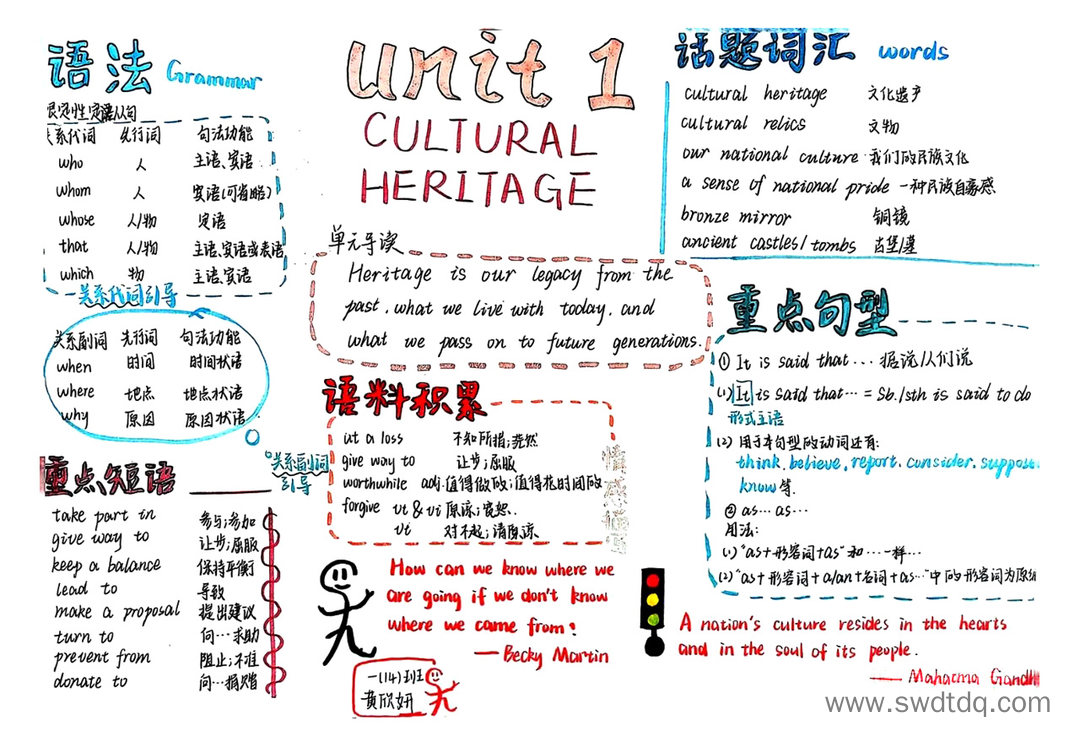 语法 Grammar
限定性定语从句
关系代词 先行词 句法功能
who 人 主语、宾语
whom 人 宾语(可省略)
whose 人/物 定语
that 人/物 主语、宾语或表语
which 物 主语、宾语
关系代词引导
关系副词 先行词 句法功能
when 时间 时间状语
where 地点 地点状语
why 原因 原因状语
关系副词
引导
重点短语
take part in 参与;参加
give way to 让步;屈服
keep a balance 保持平衡
lead to 导致
make a proposal 提出建议
turn to 向…求助
prevent from 阻止;不准
donate to 向…捐赠
unit 1
CULTURAL
HERITAGE
单元导读
Heritage is our legacy from the
past, what we live with today, and
what we pass on to future generations.
语料积累
at a loss 不知所措;茫然
give way to 让步;屈服
worthwhile adj.值得做的;值得花时间的
forgive vt & vi 原谅;宽恕.
vt 对不起;请原谅
How can we know where we
are going if we don't know
where we came from?
—Becky Martin
一(14)班
黄欣妍
话题词汇 words
cultural heritage 文化遗产
cultural relics 文物
our national culture 我们的民族文化
a sense of national pride 一种民族自豪感
bronze mirror 铜镜
ancient castles/tombs 古堡/墓
重点句型
① It is said that... 据说/人们说
(1) It is said that... = Sb./sth is said to do
形式主语
(2) 用于本句型的动词还有:
think, believe, report, consider, suppose,
know 等.
② as... as...
用法:
(1) "as+形容词+as" 和…一样…
(2) "as+形容词+a/an+名词+as…"中的形容词为原级
A nation's culture resides in the hearts
and in the soul of its people.
— Mahatma Gandhi
www.swdtdq.com